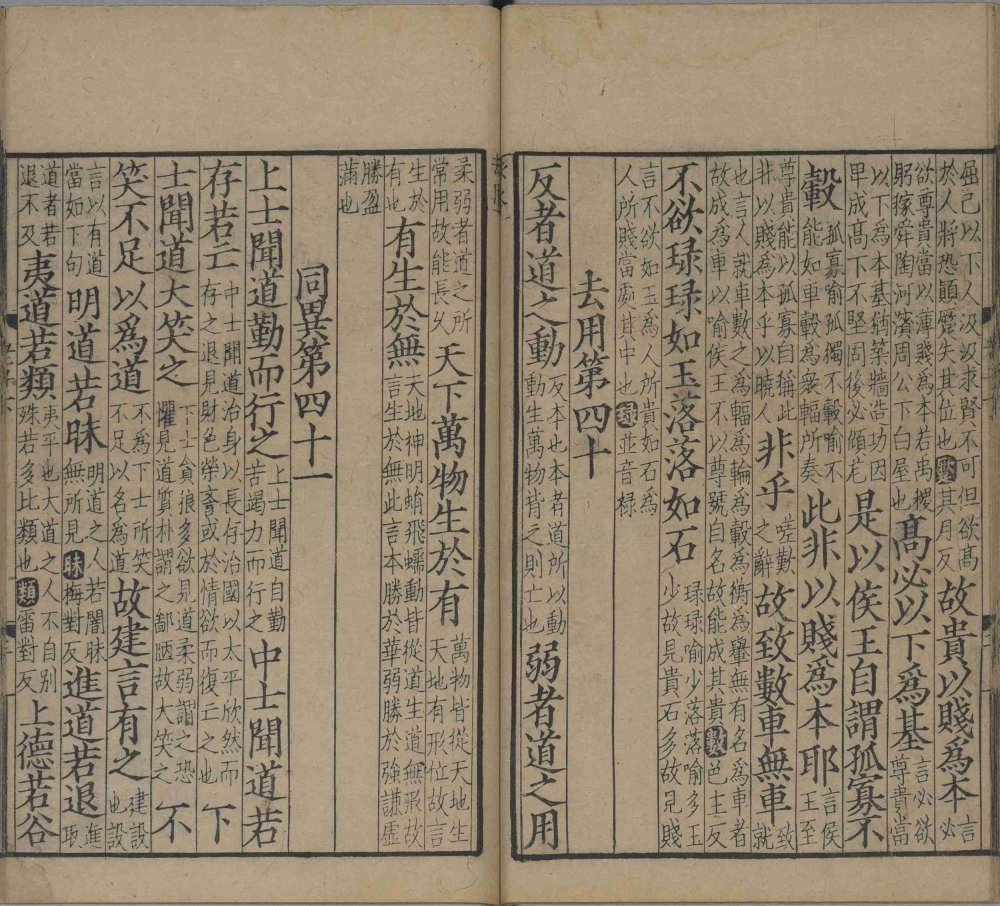 屈己以下人汲汲求賢不可但欲髙於人將恐顚蹷失其位也蹷其月反故貴以賤爲本言必
欲尊貴當以薄賤爲本若禹稷躬稼舜陶河濱周公下白屋也髙必以下爲基言必欲尊貴當
以下爲本基猶築牆造功因卑成髙下不堅固後必傾危是以侯王自謂孤寡不
轂孤寡喻孤獨不轂喻不能如車轂爲衆輻所奏此非以賤爲本耶言侯王至
尊貴能以孤寡自稱此非以賤爲本乎以曉人非乎嗟歎之辭故致數車無車致就
也言人就車數之爲輻爲輪爲轂爲衡爲轝無有名爲車者故成爲車以喻侯王不以尊號自名故能成其貴數色主反
不欲琭琭如玉落落如石琭琭喻少落落喻多玉少故見貴石多故見賤
言不欲如玉爲人所貴如石爲人所賤當處其中也琭並音禄
去用第四十
反者道之動反本也本者道所以動動生萬物背之則亡也弱者道之用
柔弱者道之所常用故能長久天下萬物生於有萬物皆從天地生天地有形位故言
生於有也有生於無天地神明蜎飛蠕動皆從道生道無形故言生於無此言本勝於華弱勝於強謙虛
勝盈滿也
同異第四十一
上士聞道勤而行之上士聞道自勤苦竭力而行之中士聞道若
存若亡中士聞道治身以長存治國以太平欣然而存之退見財色榮譽或於情欲而復亡之也下
士聞道大笑之下士貪狠多欲見道柔弱謂之恐懼見道質朴謂之鄙陋故大笑之不
笑不足以爲道不爲下士所笑不足以名爲道故建言有之建設也設
言以有道當如下句明道若昧明道之人若闇昧無所見昧梅對反進道若退進取
道者若退不及夷道若類夷平也大道之人不自别殊若多比類也類雷對反上德若谷